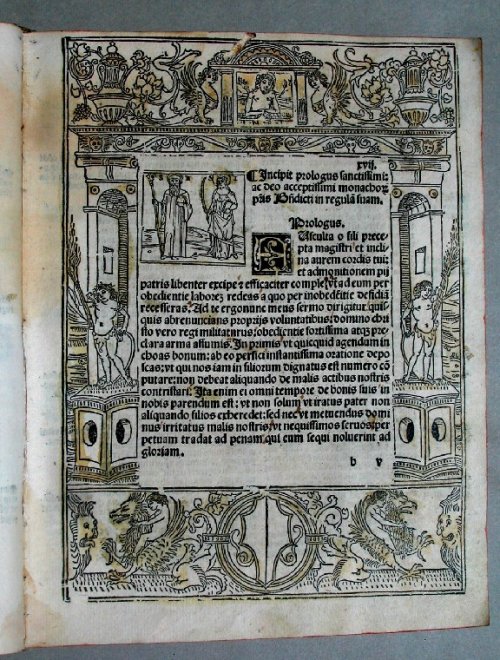 xvij.
¶Incipit prologus sanctissimi:
ac deo acceptissimi monachoꝝ
p̄ris Bn̄dicti in regulā suam.
Prologus.
Asculta o fili prece
pta magistri et incli
na aurem cordis tui:
et admonitionem pij
patris libenter excipe ⁊ efficaciter comple: vt ad eum per
obedientie laborem redeas a quo per inobediētie desidiā
recesseras. Ad te ergo nunc meus sermo dirigitur quis
quis abrenuncians proprijs voluntatibus: domino chri
sto vero regi militaturus: obedientie fortissima atqꝫ pre
clara arma assumis. In primis vt quicquid agendum in
choas bonum: ab eo perfici instantissima oratione depo
scas: vt qui nos iam in filiorum dignatus est numero cō
putare: non debeat aliquando de malis actibus nostris
contristari. Ita enim ei omni tempore de bonis suis in
nobis parendum est: vt non solum vt iratus pater non
aliquando filios exheredet: sed nec vt metuendus domi
nus irritatus malis nostris: vt nequissimos seruos: per
petuam tradat ad penam: qui eum sequi noluerint ad
gloriam.
b v